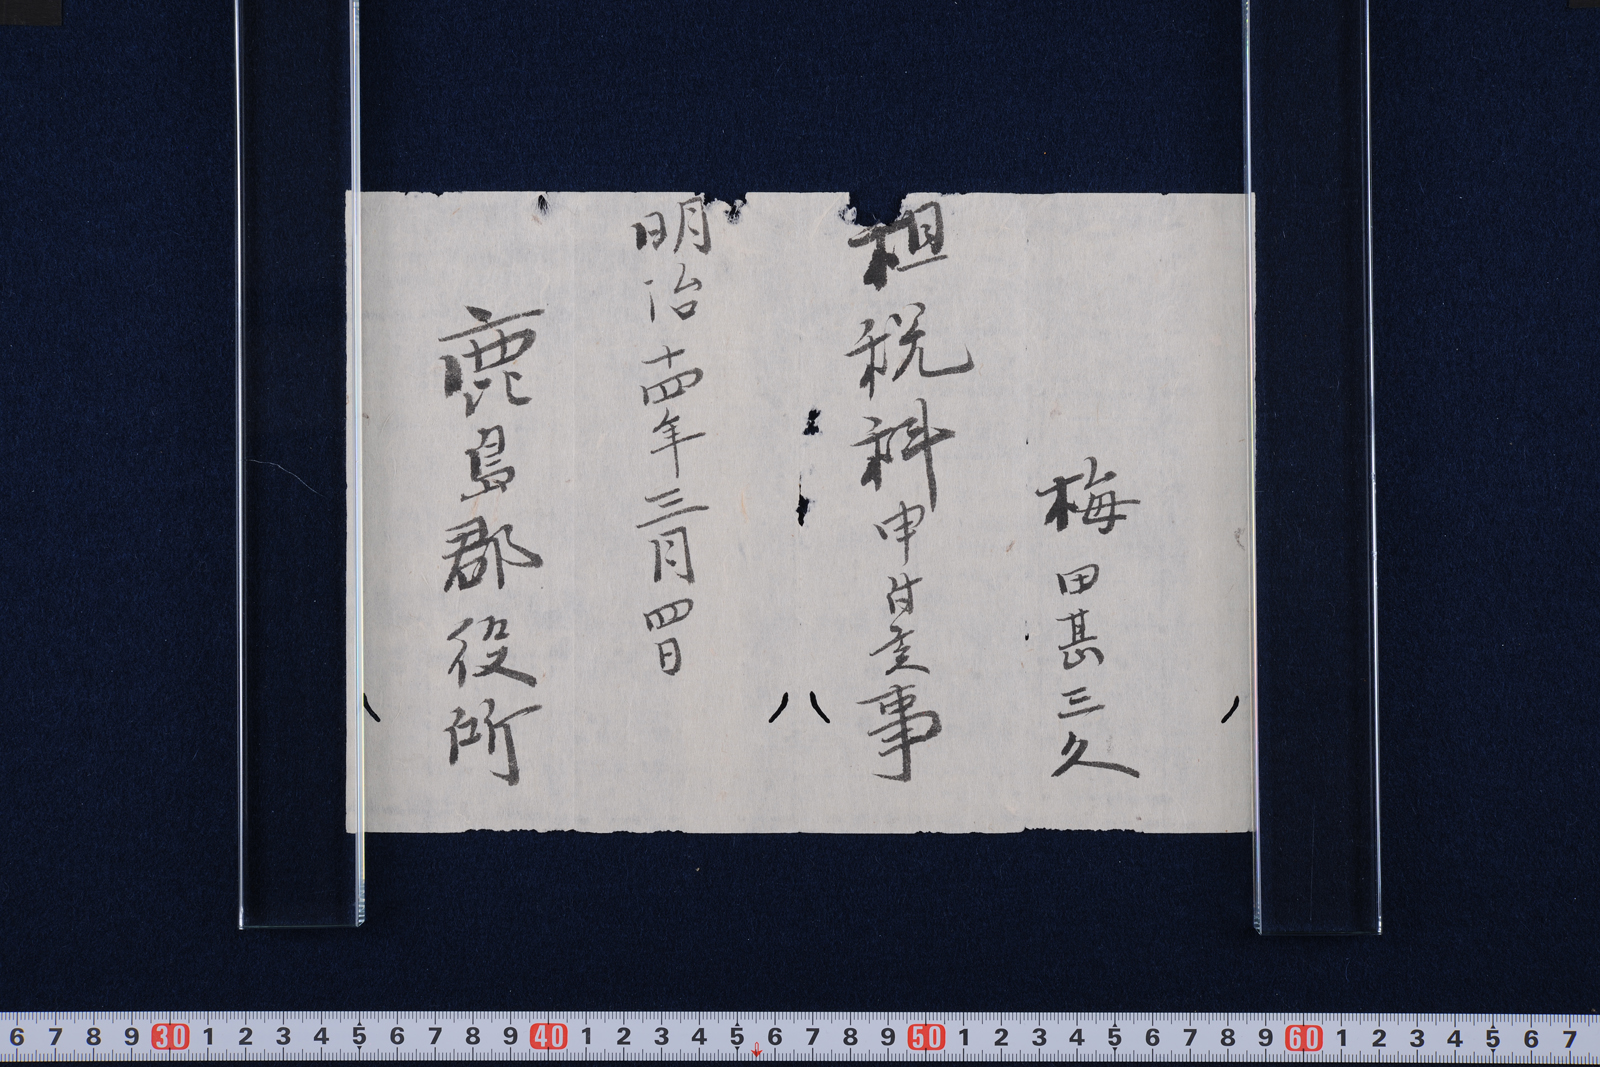 梅田甚三久
租税科申付候事
明治十四年三月四日
鹿島郡役所
6 7 8 9 30 1 2 3 4 5 6 7 8 9 40 1 2 3 4 5 6 7 8 9 50 1 2 3 4 5 6 7 8 9 60 1 2 3 4 5 6 7